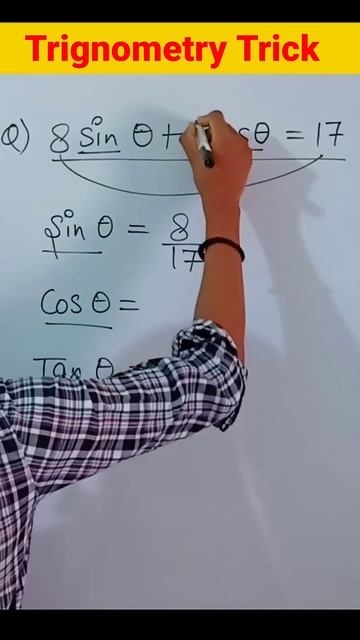 Trignometry Trick
Q) 8 sin θ + sθ = 17
sin θ = 8/17
Cos θ =
Tan θ